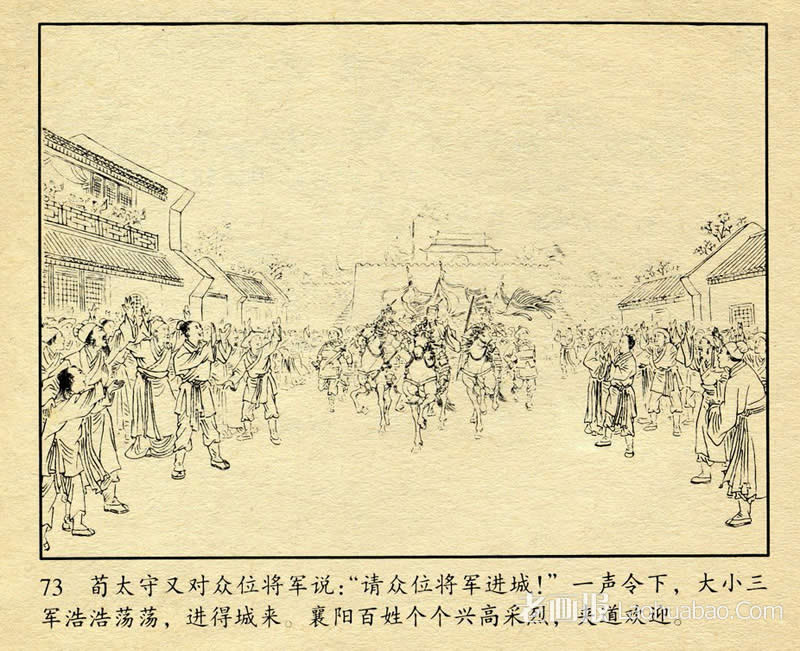 73 荀太守又对众位将军说:“请众位将军进城!”一声令下,大小三
军浩浩荡荡,进得城来。襄阳百姓个个兴高采烈,夹道欢迎。
老画报 Laohuabao.Com